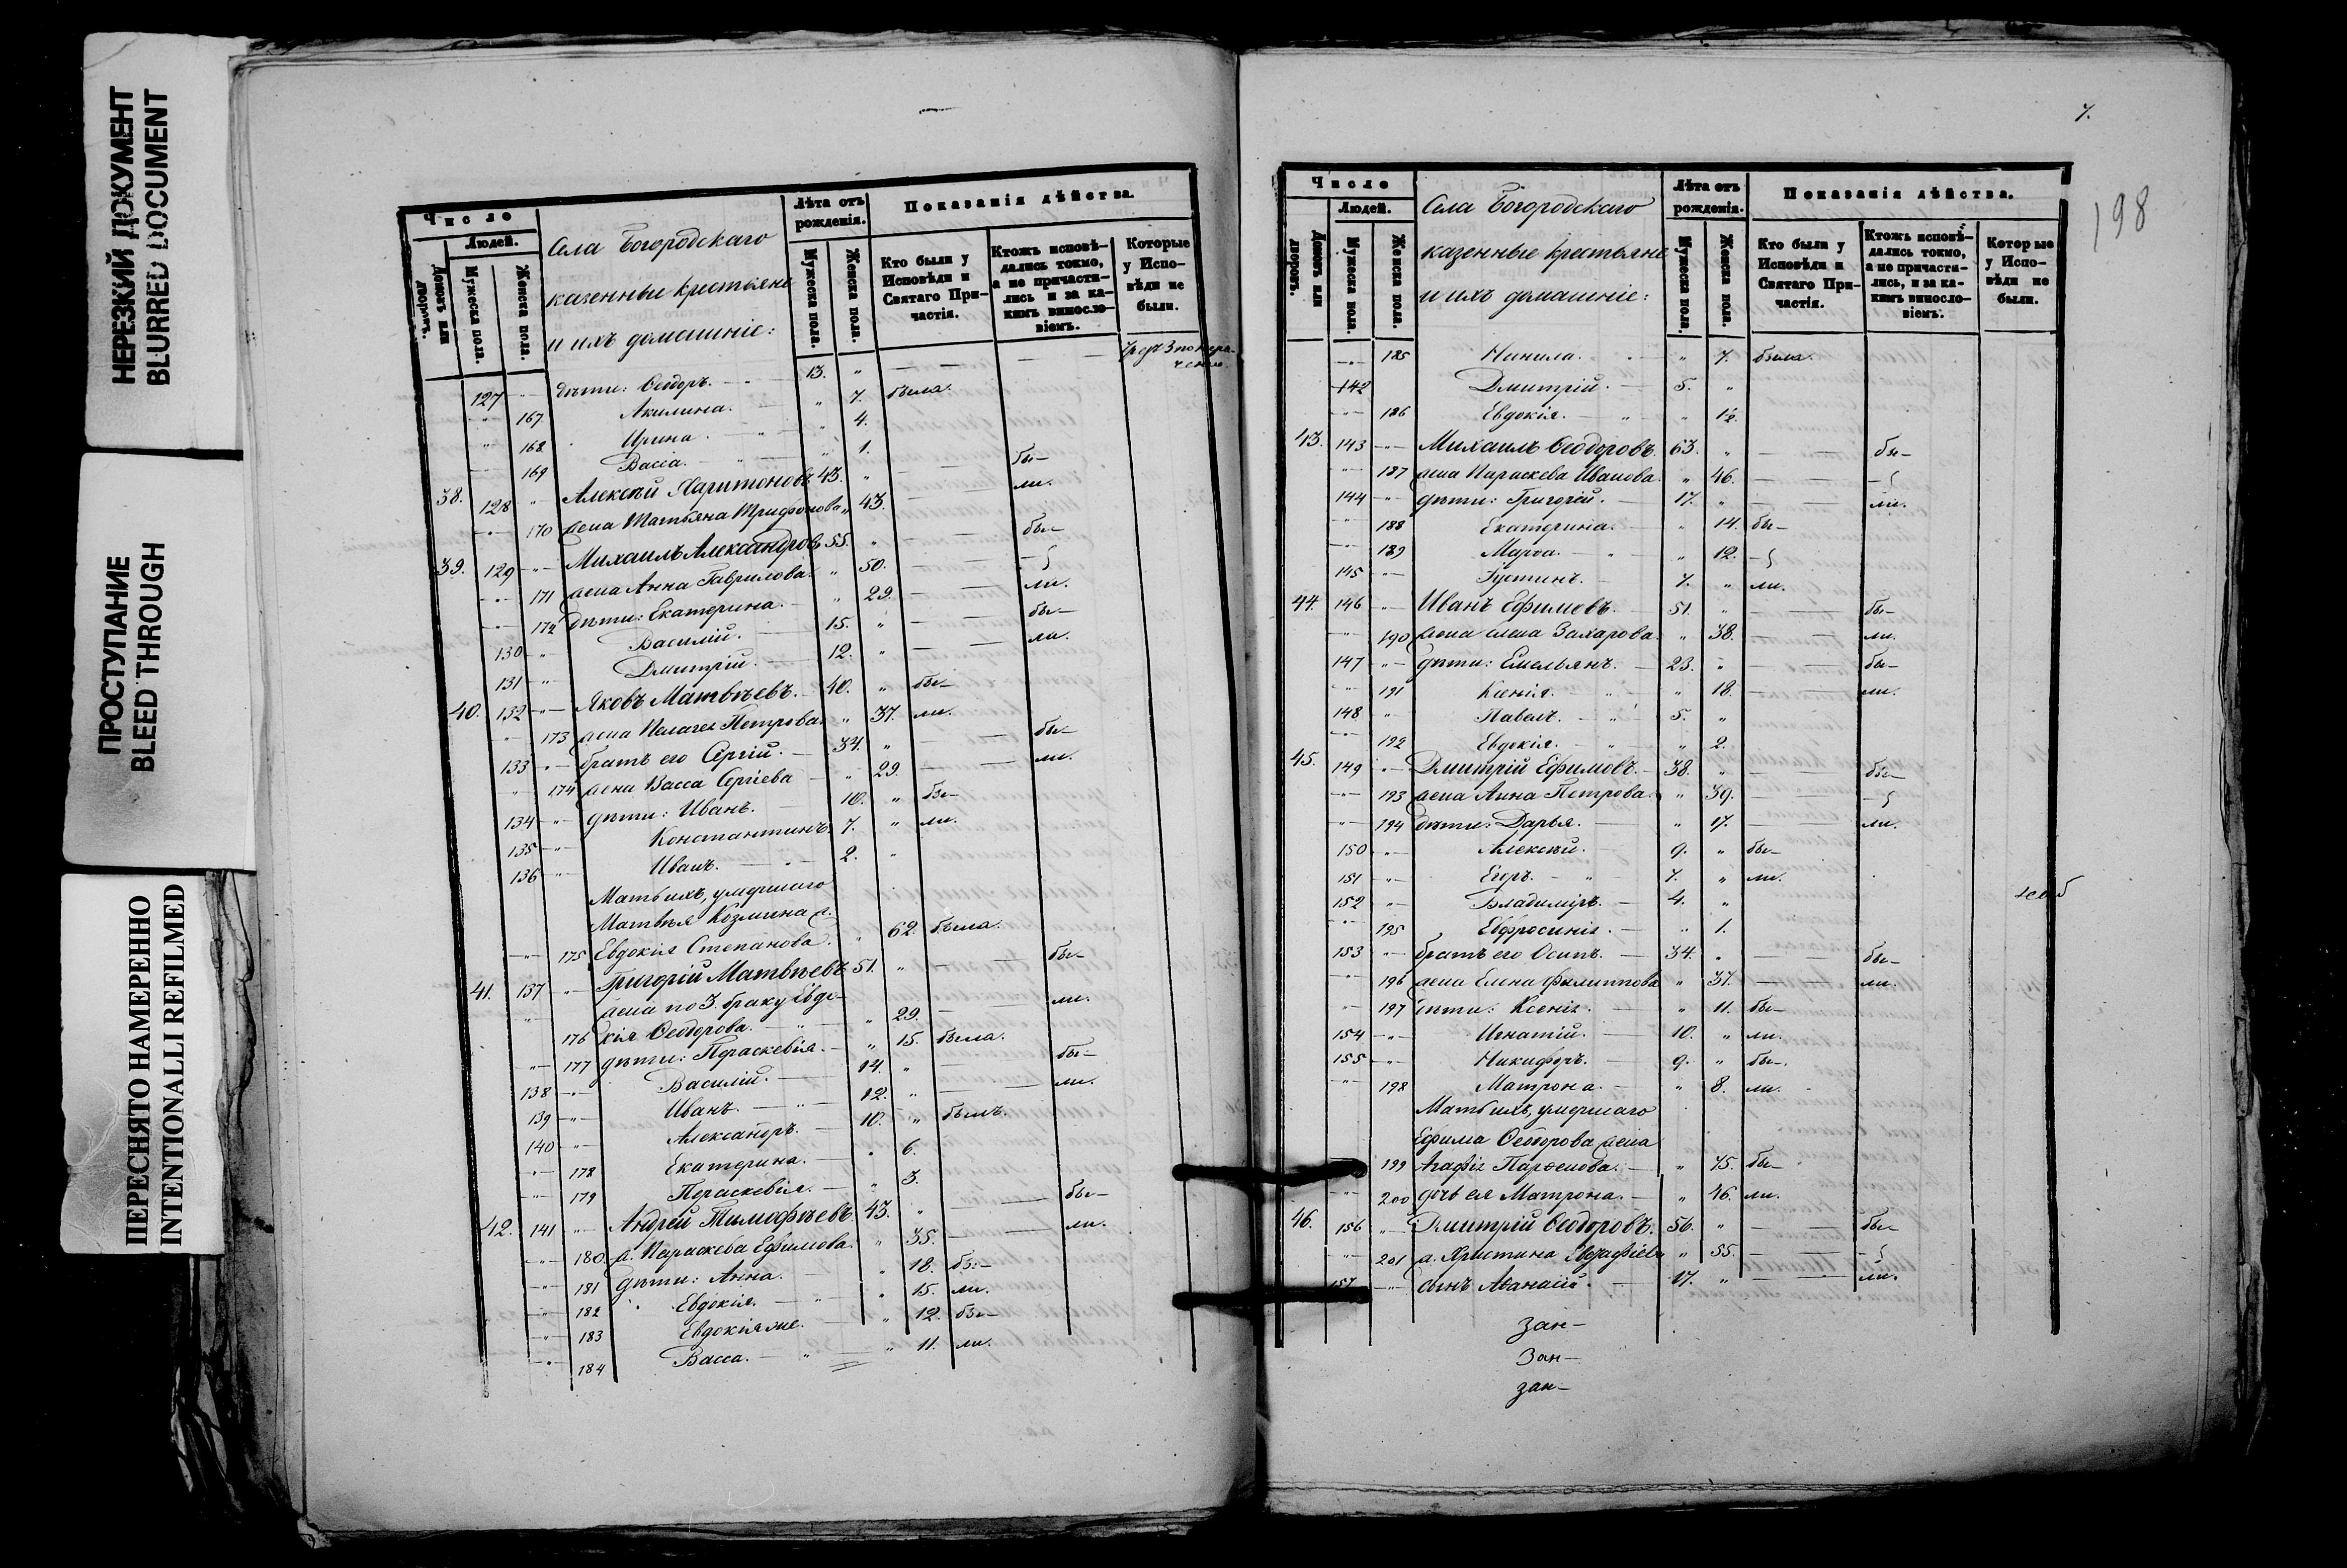 НЕРЕЗКИЙ ДОКУМЕНТ
BLURRED DOCUMENT
ПРОСТУПАНИЕ
BLEED THROUGH
ПЕРЕСНЯТО НАМЕРЕННО
INTENTIONALLI REFILMED
Число
Людей.
Домовъ или дворовъ.
Мужеска пола.
Женска пола.
Села Богородскаго
казенные крестьяне
и ихъ домашніе:
Лѣта отъ рожденія.
Мужеска пола.
Женска пола.
Показанія дѣйства.
Кто были у Исповѣди и Святаго Причастія.
Ктожъ исповѣдались токмо, а не причастились и за какимъ винословіемъ.
Которые у Исповѣди не были.
127 " дѣти: Ѳеодоръ. 13. "
" 167 Акилина. " 7. была.
" 168 Ирина. " 4.
" 169 Васса. " 1.
38. 128 " Алексѣй Харитоновъ 43. " бы-
" 170 жена Татьяна Трифонова " 43. ли.
39. 129 " Михаилъ Александровъ 55. " бы-
" 171 жена Анна Гаврилова. " 50.
" 172 дѣти: Екатерина. " 29. ли.
130 " Василій. 15. " бы-
131 " Дмитрій. 12. " ли.
40. 132 " Яковъ Матвѣевъ. 40. " бы-
" 173 жена Пелагея Петрова. " 37. ли.
133 " братъ его Сергій. 34. " бы-
" 174 жена Васса Сергіева " 29. ли.
134 " дѣти: Иванъ. 10. " бы-
135 " Константинъ. 7. " ли.
136 " Иванъ. 2. "
Мать ихъ, умершаго
Матвѣя Козмина ж.
" 175 Евдокія Степанова. " 62. была.
41. 137 " Григорій Матвѣевъ 51. " бы-
" жена по 3. браку Евдо-
176 кія Ѳеодорова. " 29. ли.
" 177 дѣти: Пераскевія. " 15. была.
138 " Василій. 14. " бы-
139 " Иванъ. 12. " ли.
140 " Александръ. 10. " былъ.
" 178 Екатерина. " 6.
" 179 Пераскевія. " 3.
42. 141 " Андрей Тимофѣевъ. 43. " бы-
" 180. ж. Параскева Ефимова. " 35. ли.
" 181 дѣти: Анна. " 18. бы-
" 182 Евдокія. " 15. ли.
" 183 Евдокія же. " 12. бы-
" 184 Васса. " 11. ли.
7.
198
Число
Людей.
Домовъ или дворовъ.
Мужеска пола.
Женска пола.
Села Богородскаго
казенные крестьяне
и ихъ домашніе:
Лѣта отъ рожденія.
Мужеска пола.
Женска пола.
Показанія дѣйства.
Кто были у Исповѣди и Святаго Причастія.
Ктожъ исповѣдались токмо, а не причастились, и за какимъ винословіемъ.
Которые у Исповѣди не были.
" 185 Нинила. " 7. была.
142 Дмитрій. 5. "
" 186 Евдокія. " 1½.
43. 143 " Михаилъ Ѳеодоровъ. 63. " бы-
" 187 жена Параскева Иванова. " 46.
144 " дѣти: Григорій. 17. " ли.
" 188 Екатерина. " 14. бы-
" 189 Марѳа. " 12.
145 " Іустинъ. 7. " ли.
44. 146 " Иванъ Ефимовъ. 51. " бы-
" 190 жена Елена Захарова. " 38. ли.
147 " дѣти: Емельянъ. 23. " бы-
" 191 Ксенія. " 18. ли.
148 " Павелъ. 5. "
" 192 Евдокія. " 2.
45. 149 " Дмитрій Ефимовъ. 38. " бы-
" 193 жена Анна Петрова. " 39.
" 194 дѣти: Дарья. " 17. ли.
150 " Алексѣй. 9. " бы-
151 " Егоръ. 7. " ли.
152 " Владиміръ. 4. "
" 195 Евфросинія. " 1.
153 " братъ его Осипъ. 34. " бы-
" 196 жена Елена Филиппова " 37. ли.
" 197 дѣти: Ксенія. " 11. бы-
154 " Игнатій. 10. " ли.
155 " Никифоръ. 9. " бы-
" 198 Матрона. " 8. ли.
Мать ихъ, умершаго
Ефима Ѳеодорова жена
199 Агафія Парѳенова. " 75. бы-
" 200 дочь ея Матрона. " 46. ли.
46. 156 " Дмитрій Ѳеодоровъ. 56. " бы-
" 201 ж. Христина " 55.
157 " сынъ Аѳанасій. 17. " ли.
зан-
Зан-
зан-